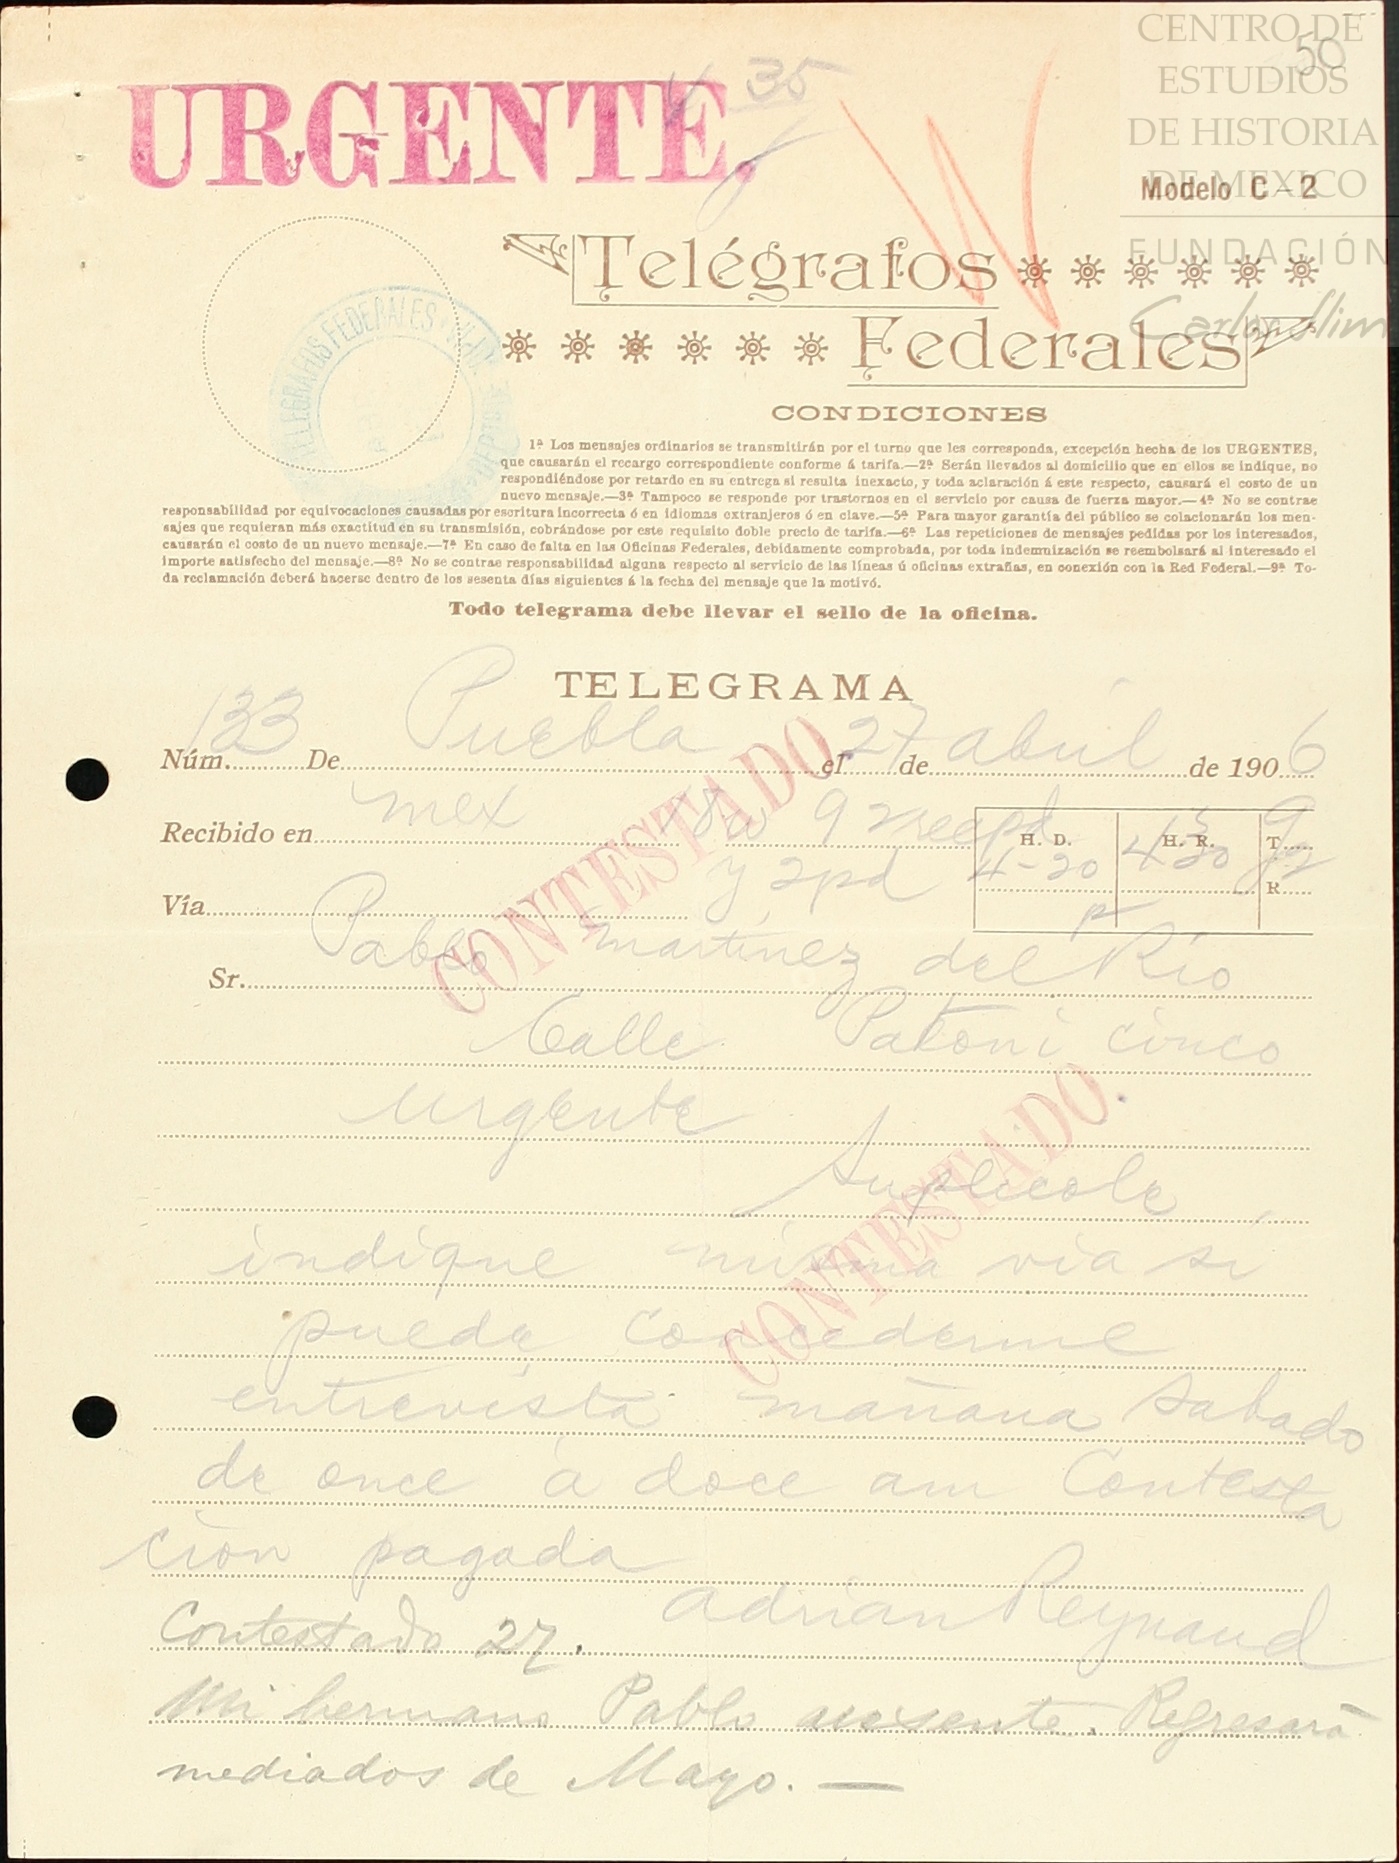 CENTRO DE
ESTUDIOS
DE HISTORIA
DE MEXICO
FUNDACIÓN
Carlos Slim
50
URGENTE.
35
Modelo C-2
Telégrafos
Federales
TELEGRAFOS FEDERALES
CONDICIONES
1ª Los mensajes ordinarios se transmitirán por el turno que les corresponda, excepción hecha de los URGENTES,
que causarán el recargo correspondiente conforme á tarifa.—2ª Serán llevados al domicilio que en ellos se indique, no
respondiéndose por retardo en su entrega si resulta inexacto, y toda aclaración á este respecto, causará el costo de un
nuevo mensaje.—3ª Tampoco se responde por trastornos en el servicio por causa de fuerza mayor.—4ª No se contrae
responsabilidad por equivocaciones causadas por escritura incorrecta ó en idiomas extranjeros ó en clave.—5ª Para mayor garantía del público se colacionarán los men-
sajes que requieran más exactitud en su transmisión, cobrándose por este requisito doble precio de tarifa.—6ª Las repeticiones de mensajes pedidas por los interesados,
causarán el costo de un nuevo mensaje.—7ª En caso de falta en las Oficinas Federales, debidamente comprobada, por toda indemnización se reembolsará al interesado el
importe satisfecho del mensaje.—8ª No se contrae responsabilidad alguna respecto al servicio de las líneas ú oficinas extrañas, en conexión con la Red Federal.—9ª To-
da reclamación deberá hacerse dentro de los sesenta días siguientes á la fecha del mensaje que la motivó.
Todo telegrama debe llevar el sello de la oficina.
TELEGRAMA
Núm. 133 De Puebla el 27 de abril de 1906
Recibido en mex 18w 9 H. D. H. R. T
Vía y 2pd 4-20 430 R
Sr. Pablo Martínez del Rio
Calle Patoni cinco
urgente
Suplicole
indique misma via si
puede concederme
entrevista mañana sabado
de once á doce am Contesta
ción pagada
Adrian Reynaud
CONTESTADO
CONTESTADO.
Contestado 27.
Mi hermano Pablo ausente. Regresará
mediados de Mayo. —